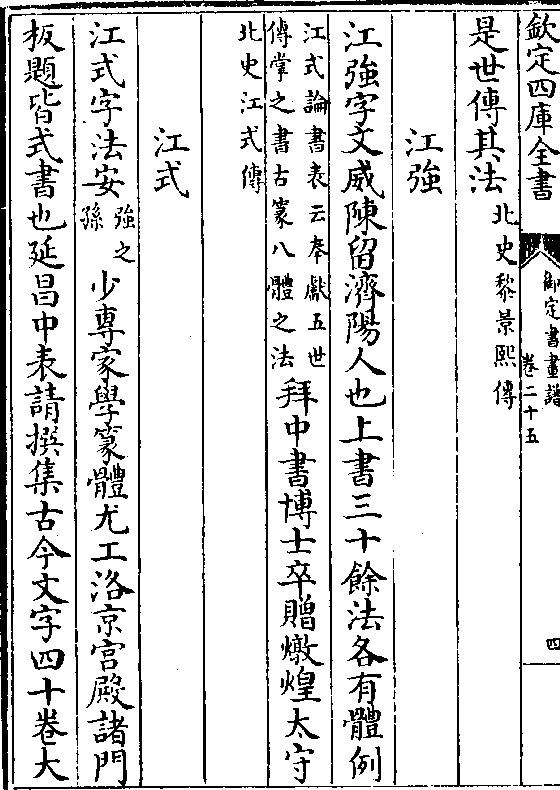 欽定四庫全書
御定書畫譜
卷二十五
四
是世傳其法
北史黎景熙傳
江強
江強字文威陳留濟陽人也上書三十餘法各有體例
江式論書表云奉獻五世
傳掌之書古篆八體之法
拜中書博士卒贈燉煌太守
北史江式傳
江式
江式字法安
強之
孫
少專家學篆體尤工洛京宮殿諸門
板題皆式書也延昌中表請撰集古今文字四十卷大